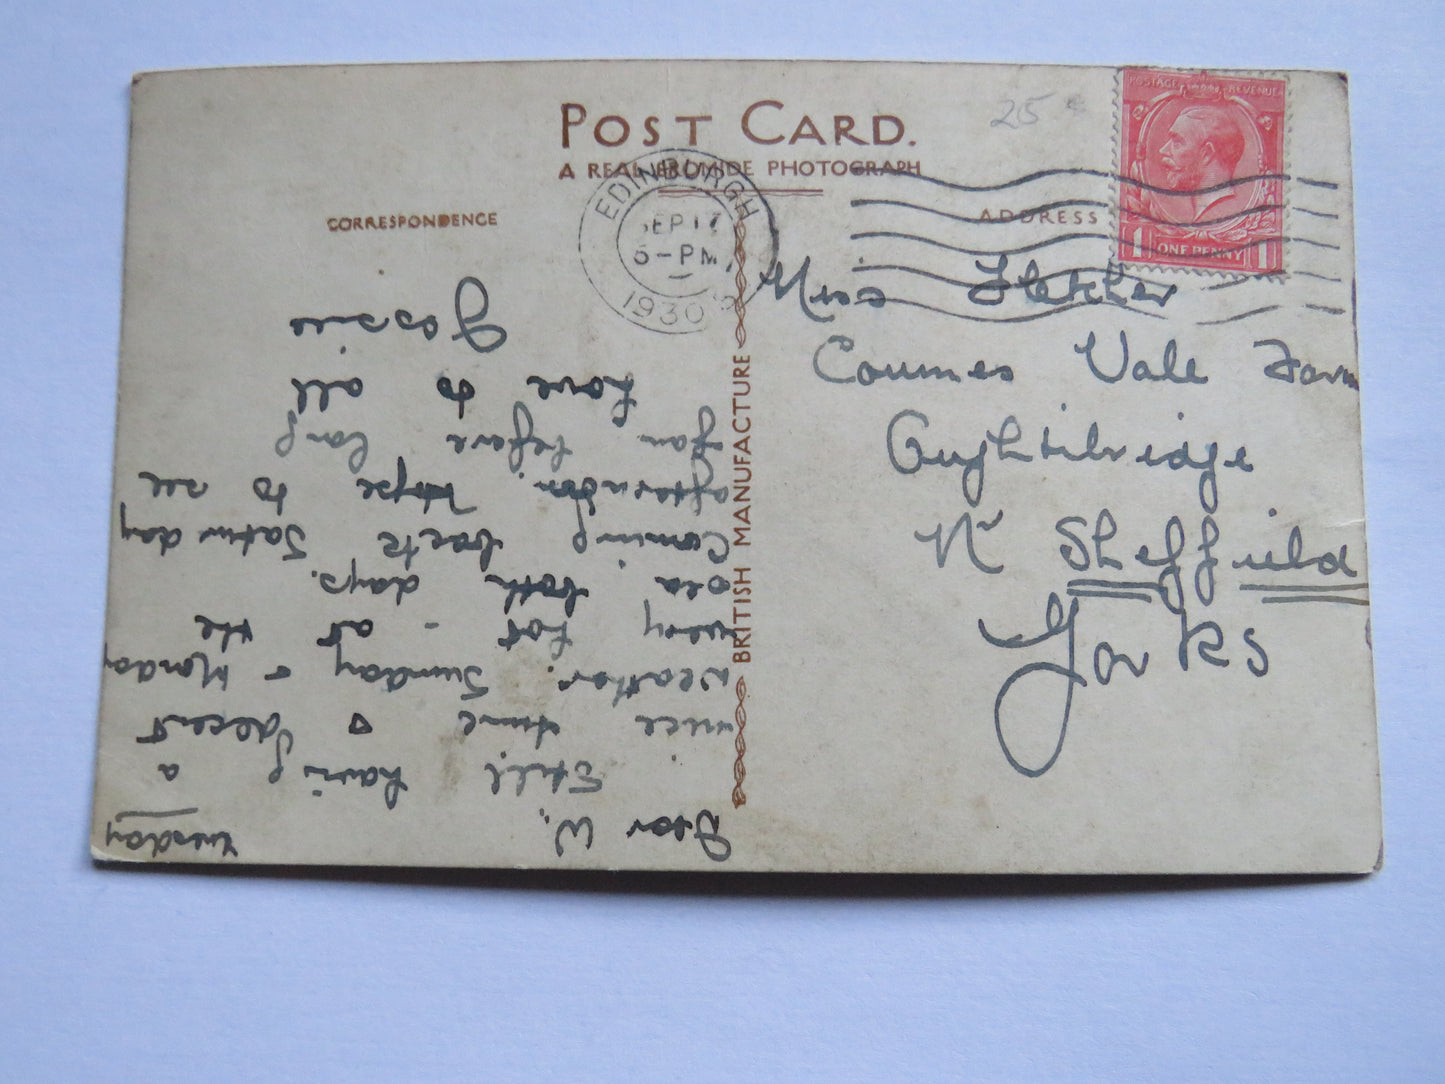 POST CARD.
A REAL BROMIDE PHOTOGRAPH
CORRESPONDENCE
ADDRESS
25
EDINBURGH
SEP 17
6-PM
1930
POSTAGE REVENUE
1 ONE PENNY 1
BRITISH MANUFACTURE
Miss Fletcher
Coumes Vale Farm
Oughtibridge
Nr Sheffield
Yorks
Tuesday
Dear W.
Still having a
nice time & decent
weather. Sunday & Monday
very hot - at the
sea both days.
Coming back Saturday
afternoon. Hope to see
you before long
Love to all
Jessie